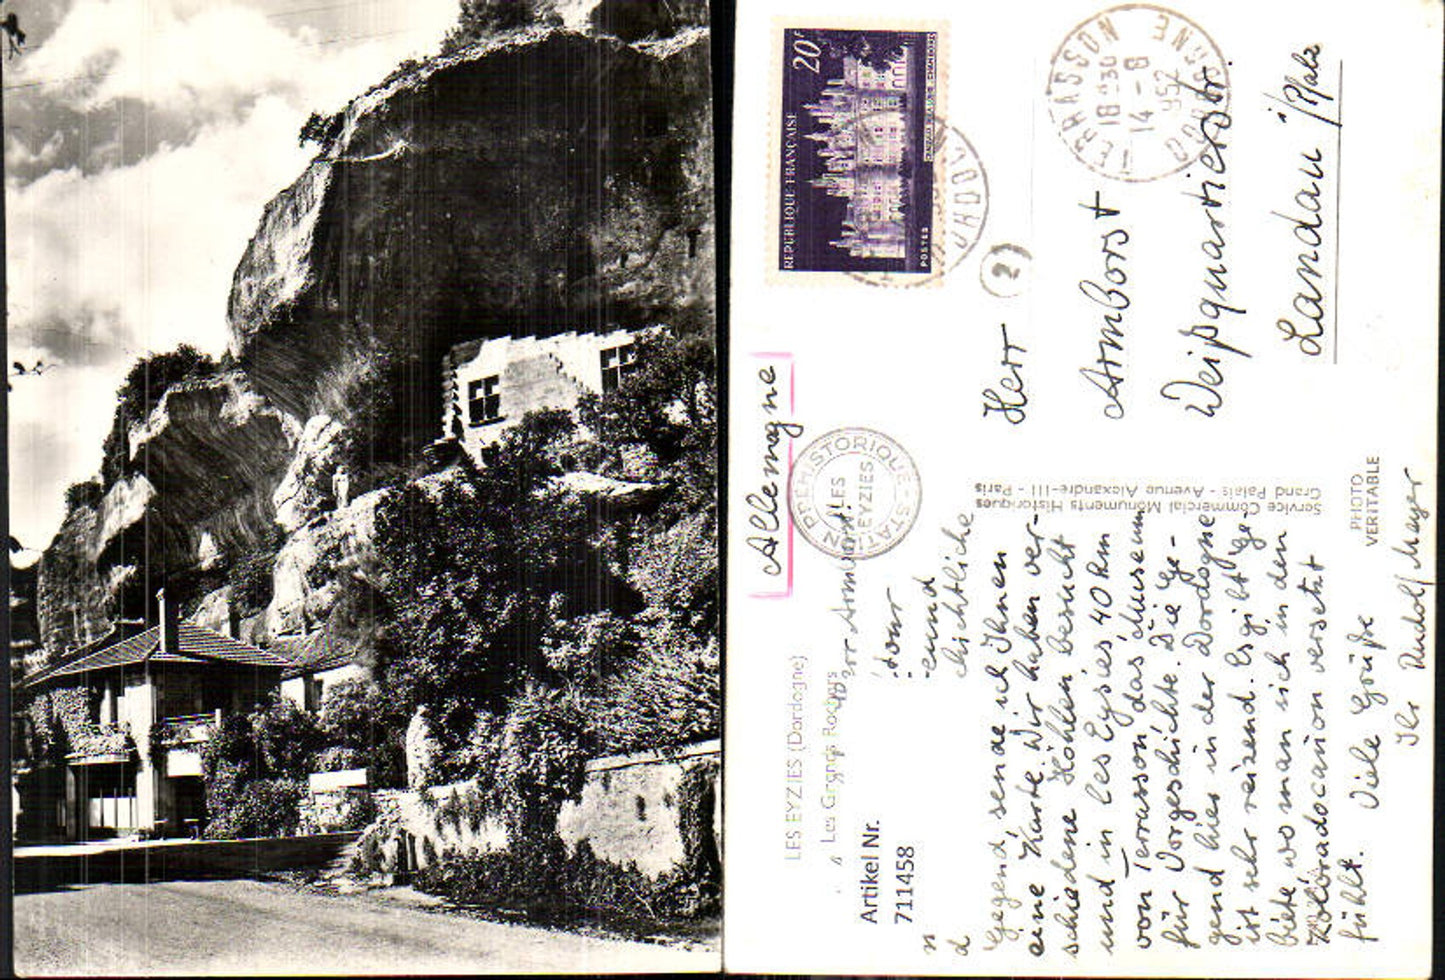 LES EYZIES (Dordogne)
Les Grands Rocs
Artikel Nr.
711458
Allemagne
STATION PREHISTORIQUE
LES
EYZIES
REPUBLIQUE FRANÇAISE
20F
POSTES
TERRASSON
DORDOGNE
18 H 30
14 - 8
1952
2
Herr
Armborst
Weißquartierstr.
Landau i/Pfalz
Service Commercial Monuments Historiques
Grand Palais - Avenue Alexandre-III - Paris
PHOTO
VERITABLE
Gegend, sende ich Ihnen
eine Karte. Wir haben ver-
schiedene Höhlen besucht
und in Les Eyzies 40 km
von Terrasson das Museum
für Vorgeschichte. Die Ge-
gend hier in der Dordogne
ist sehr reizend. Es gibt Ge-
biete wo man sich in den
Koloradocanion versetzt
fühlt. Viele Grüße
Ihr Rudolf Mayer